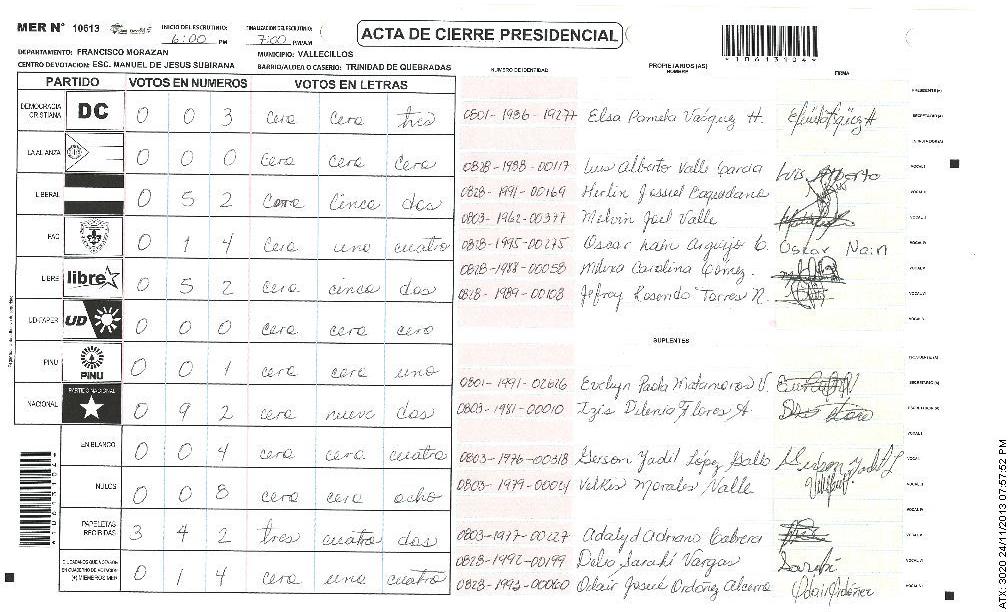 MER N° 10613
INICIO DEL ESCRUTINIO: 6:00 PM
FINALIZACION DEL ESCRUTINIO: 7:00 PM/AM
ACTA DE CIERRE PRESIDENCIAL
DEPARTAMENTO: FRANCISCO MORAZAN
MUNICIPIO: VALLECILLOS
CENTRO DE VOTACION: ESC. MANUEL DE JESUS SUBIRANA
BARRIO/ALDEA O CASERIO: TRINIDAD DE QUEBRADAS
PARTIDO VOTOS EN NUMEROS VOTOS EN LETRAS
DEMOCRACIA CRISTIANA DC 0 0 3 cero cero tres
LA ALIANZA 0 0 0 cero cero cero
LIBERAL 0 5 2 cero cinco dos
PAC 0 1 4 cero uno cuatro
LIBRE libre 0 5 2 cero cinco dos
UD-FAPER UD 0 0 0 cero cero cero
PINU PINU 0 0 1 cero cero uno
NACIONAL PARTIDO NACIONAL 0 9 2 cero nueve dos
EN BLANCO 0 0 4 cero cero cuatro
NULOS 0 0 8 cero cero ocho
PAPELETAS RECIBIDAS 3 4 2 tres cuatro dos
CIUDADANOS QUE VOTARON EN CUADERNO DE VOTACION (+) MIEMBROS MER 0 1 4 cero uno cuatro
NUMERO DE IDENTIDAD PROPIETARIOS (AS) NOMBRE FIRMA
PRESIDENTE (A)
0801-1986-19277 Elsa Pamela Vasquez H. SECRETARIO (A)
ESCRUTADOR (A)
0828-1988-00117 Luis Alberto Valle Garcia Luis Alberto VOCAL I
0828-1991-00169 Herlin Josuel VOCAL II
0803-1962-00377 Melvin Joel Valle VOCAL III
0828-1995-00275 Oscar Nain Oscar Nain VOCAL IV
0828-1988-00058 Carolina Gomez. VOCAL V
0828-1989-00108 Jefray Rosendo Torres R. VOCAL VI
VOCAL VII
SUPLENTES
PRESIDENTE (A)
0801-1991-02626 Evelyn Paola Matamoros V. SECRETARIO (A)
0803-1981-00010 Izis Dilenia Flores A. ESCRUTADOR (A)
VOCAL I
0803-1976-00318 Gerson Yadil López VOCAL II
0803-1979-00021 Morales Valle VOCAL III
VOCAL IV
0803-1977-00227 Adalyd Adriano Cabrera VOCAL V
0828-1992-00199 Delia Sarahi Vargas Sarahi
0828-1993-00060 Odair Josué Ordóñez Odair Ordoñez
*10613104*
*10613104*
ATX-3020 24/11/2013 07:57:52 PM